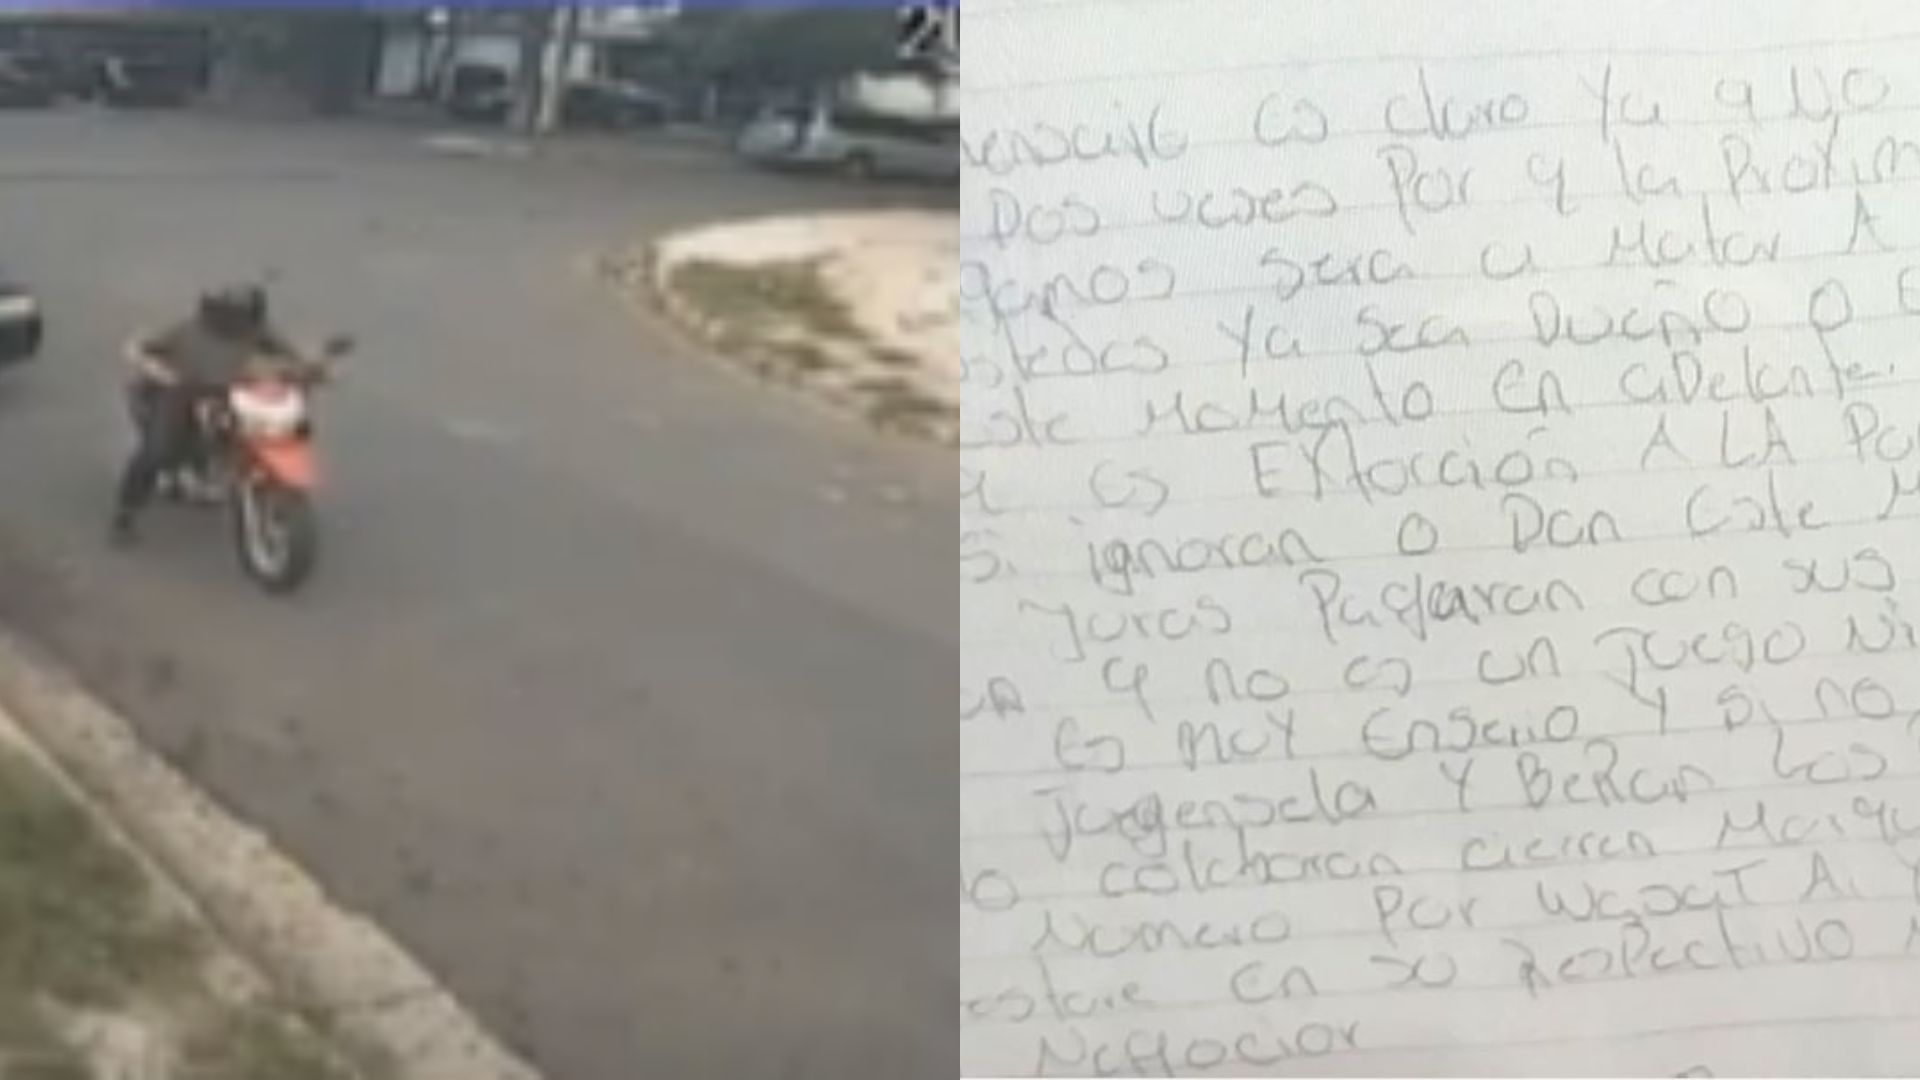 20
es claro Ya q NO
Dos veses Por q la Proxim
ganos sera a Matar A
stedes Ya sea DUEÑO O E
ste MoMento En aDelante.
es EXtorción A LA Po
si ignoran o Dan Este M
Juras Pagaran con sus
q no es un JUEGO Ni
Es MUY Enserio Y Si no
Y BeRan Los
o colaboran cierren Marqu
Numero Por WasatT A. Y
estare En su ResPectiVO N
Neglocior